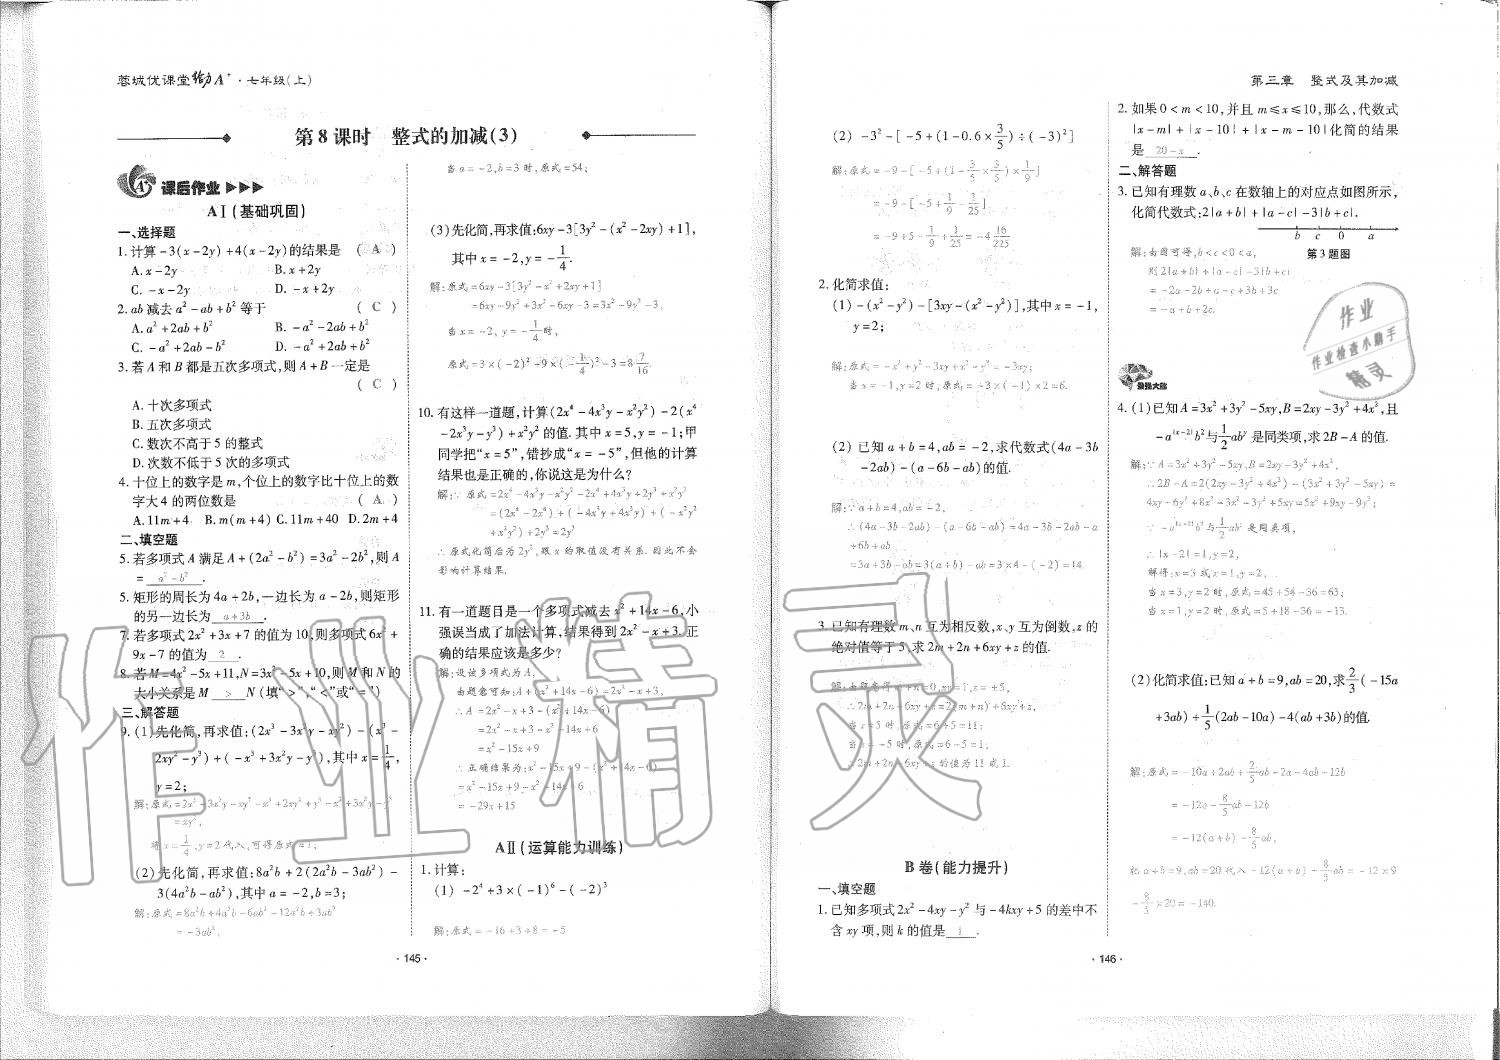 蓉城优课堂 给力A⁺·七年级(上)
第8课时 整式的加减(3)
课后作业
AⅠ(基础巩固)
一、选择题
1. 计算-3(x-2y)+4(x-2y)的结果是 ( A )
A. x-2y B. x+2y
C. -x-2y D. -x+2y
2. ab减去a²-ab+b²等于 ( C )
A. a²+2ab+b² B. -a²-2ab+b²
C. -a²+2ab-b² D. -a²+2ab+b²
3. 若A和B都是五次多项式,则A+B一定是
( C )
A. 十次多项式
B. 五次多项式
C. 次数不高于5的整式
D. 次数不低于5次的多项式
4. 十位上的数字是m,个位上的数字比十位上的数
字大4的两位数是 ( A )
A. 11m+4 B. m(m+4) C. 11m+40 D. 2m+4
二、填空题
5. 若多项式A满足A+(2a²-b²)=3a²-2b²,则A
= a²-b² .
5. 矩形的周长为4a+2b,一边长为a-2b,则矩形
的另一边长为 a+3b .
7. 若多项式2x²+3x+7的值为10,则多项式6x²+
9x-7的值为 2 .
8. 若M=4x²-5x+11,N=3x²-5x+10,则M和N的
大小关系是M > N(填“>”,“<”或“=”)
三、解答题
9. (1)先化简,再求值:(2x³-3x²y-xy²)-(x³-
2xy²-y³)+(-x³+3x²y-y³),其中x=1/4,
y=2;
解:原式=2x³-3x²y-xy²-x³+2xy²+y³-x³+3x²y-y³
=xy²,
将x=1/4,y=2代入,可得原式=1;
(2)先化简,再求值:8a²b+2(2a²b-3ab²)-
3(4a²b-ab²),其中a=-2,b=3;
解:原式=8a²b+4a²b-6ab²-12a²b+3ab²
=-3ab²,
当a=-2,b=3时,原式=54;
(3)先化简,再求值:6xy-3[3y²-(x²-2xy)+1],
其中x=-2,y=-1/4.
解:原式=6xy-3[3y²-x²+2xy+1]
=6xy-9y²+3x²-6xy-3=3x²-9y²-3,
当x=-2,y=-1/4时,
原式=3×(-2)²-9×(-1/4)²-3=8 7/16.
10. 有这样一道题,计算(2x⁴-4x³y-x²y²)-2(x⁴
-2x³y-y³)+x²y²的值.其中x=5,y=-1;甲
同学把“x=5”,错抄成“x=-5”,但他的计算
结果也是正确的,你说这是为什么?
解:∵原式=2x⁴-4x³y-x²y²-2x⁴+4x³y+2y³+x²y²
=(2x⁴-2x⁴)+(-4x³y+4x³y)+(-x²y²
+x²y²)+2y³=2y³
∴原式化简后为2y³,跟x的取值没有关系.因此不会
影响计算结果.
11. 有一道题目是一个多项式减去x²+14x-6,小
强误当成了加法计算,结果得到2x²-x+3.正
确的结果应该是多少?
解:设该多项式为A,
由题意可知:A+(x²+14x-6)=2x²-x+3,
∴A=2x²-x+3-(x²+14x-6)
=2x²-x+3-x²-14x+6
=x²-15x+9
∴正确结果为:x²-15x+9-(x²+14x-6)
=x²-15x+9-x²-14x+6
=-29x+15
AⅡ(运算能力训练)
1. 计算:
(1) -2⁴+3×(-1)⁶-(-2)³
解:原式=-16+3+8=-5
·145·
第三章 整式及其加减
(2) -3²-[-5+(1-0.6×3/5)÷(-3)²]
解:原式=-9-[-5+(1-3/5×3/5)×1/9]
=-9-[-5+1/9-1/25]
=-9+5-1/9+1/25=-4 16/225
2. 化简求值:
(1) -(x²-y²)-[3xy-(x²-y²)],其中x=-1,
y=2;
解:原式=-x²+y²-3xy+x²-y²=-3xy;
当x=-1,y=2时,原式=-3×(-1)×2=6.
(2) 已知a+b=4,ab=-2,求代数式(4a-3b
-2ab)-(a-6b-ab)的值.
解:∵a+b=4,ab=-2,
∴(4a-3b-2ab)-(a-6b-ab)=4a-3b-2ab-a
+6b+ab
=3a+3b-ab=3(a+b)-ab=3×4-(-2)=14
3. 已知有理数m、n互为相反数,x、y互为倒数,z的
绝对值等于5,求2m+2n+6xy+z的值.
解:由题意得m+n=0,xy=1,z=±5,
∴2m+2n+6xy+z=2(m+n)+6xy+z,
当z=5时,原式=6+5=11;
当z=-5时,原式=6-5=1;
∴2m+2n+6xy+z的值为11或1.
B卷(能力提升)
一、填空题
1. 已知多项式2x²-4xy-y²与-4kxy+5的差中不
含xy项,则k的值是 1 .
2. 如果0<m<10,并且m≤x≤10,那么,代数式
|x-m|+|x-10|+|x-m-10|化简的结果
是 20-x .
二、解答题
3. 已知有理数a、b、c在数轴上的对应点如图所示,
化简代数式:2|a+b|+|a-c|-3|b+c|.
b c 0 a
第3题图
解:由图可得,b<c<0<a,
则2|a+b|+|a-c|-3|b+c|
=-2a-2b+a-c+3b+3c
=-a+b+2c.
最强大脑
4. (1)已知A=3x²+3y²-5xy,B=2xy-3y²+4x²,且
-a^|x-2|b²与1/2ab^y是同类项,求2B-A的值.
解:∵A=3x²+3y²-5xy,B=2xy-3y²+4x²,
∴2B-A=2(2xy-3y²+4x²)-(3x²+3y²-5xy)=
4xy-6y²+8x²-3x²-3y²+5xy=5x²+9xy-9y²;
∵-a^|x-2|b²与1/2ab^y是同类项,
∴|x-2|=1,y=2,
解得:x=3或x=1,y=2,
当x=3,y=2时,原式=45+54-36=63;
当x=1,y=2时,原式=5+18-36=-13.
(2)化简求值:已知a+b=9,ab=20,求2/3(-15a
+3ab)+1/5(2ab-10a)-4(ab+3b)的值.
解:原式=-10a+2ab+2/5ab-2a-4ab-12b
=-12a-8/5ab-12b
=-12(a+b)-8/5ab,
把a+b=9,ab=20代入-12(a+b)-8/5ab=-12×9
-8/5×20=-140.
·146·
作业
作业检查小助手
精灵
作业精灵